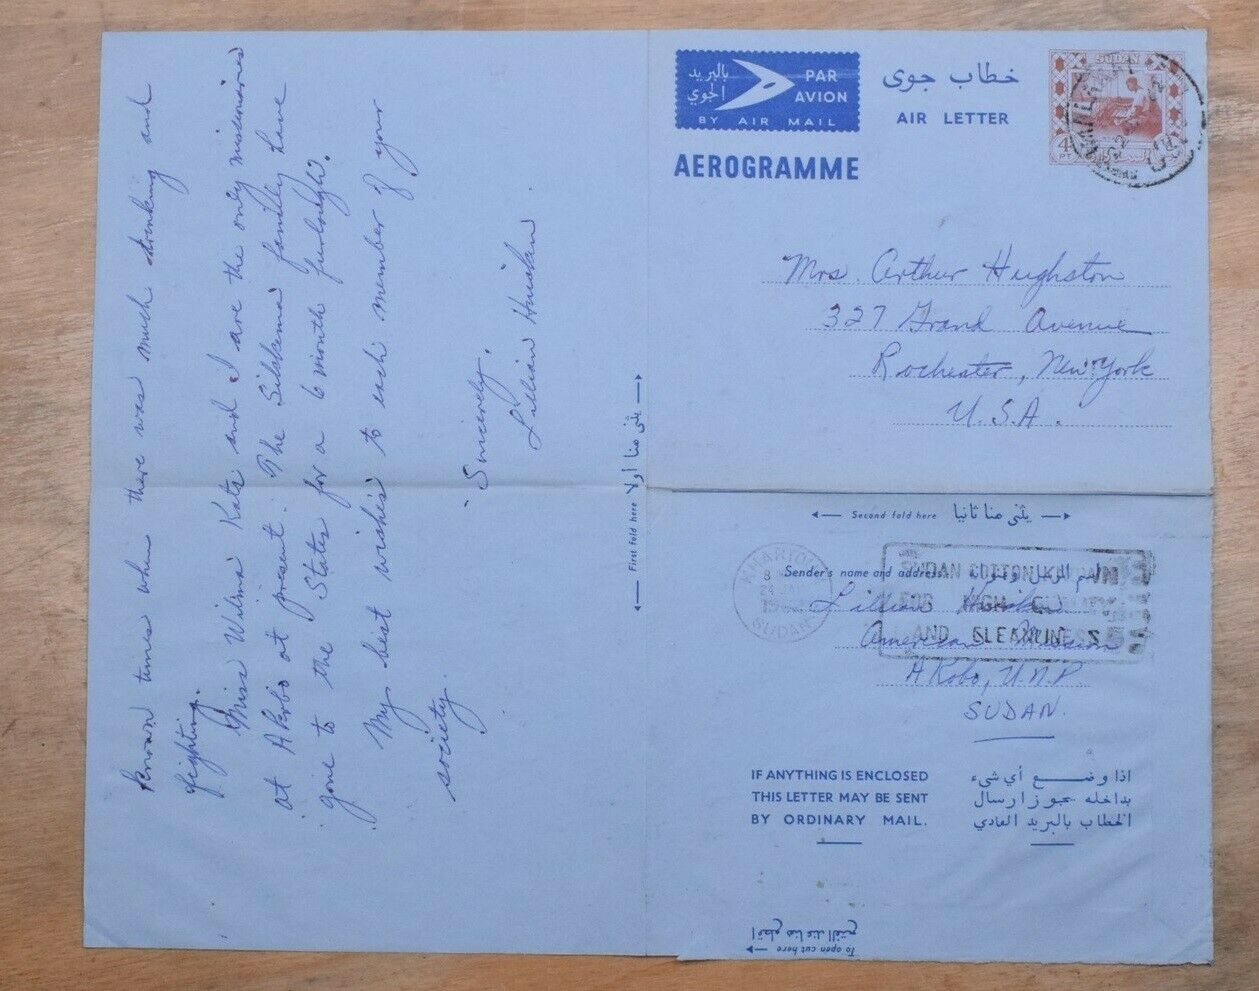 known times when there was much drinking and
fighting.
Miss Wilma Kats and I are the only missionaries
at Akobo at present. The Sikkema family have
gone to the States for a 6 month furlough.
My best wishes to each member of your
society.
Sincerely,
Lillian Huisken
بالبريد الجوي
PAR AVION
BY AIR MAIL
خطاب جوى
AIR LETTER
AEROGRAMME
SUDAN
4
PT
Mrs. Arthur Hughston
327 Grand Avenue
Rochester, New York
U.S.A.
First fold here يثنى هنا أولا
Second fold here يثنى هنا ثانيا
KHARTOUM
SUDAN
SUDAN COTTON KNOWN
FOR HIGH QUALITY
AND CLEANLINESS
Sender's name and address: اسم المرسل وعنوانه
Lillian Huisken
American Mission
Akobo, U.N.P.
SUDAN.
IF ANYTHING IS ENCLOSED
THIS LETTER MAY BE SENT
BY ORDINARY MAIL.
اذا وضع أي شىء
بداخله يجوز ارسال
الخطاب بالبريد العادي
To open cut here
اقطع هنا عند الفتح